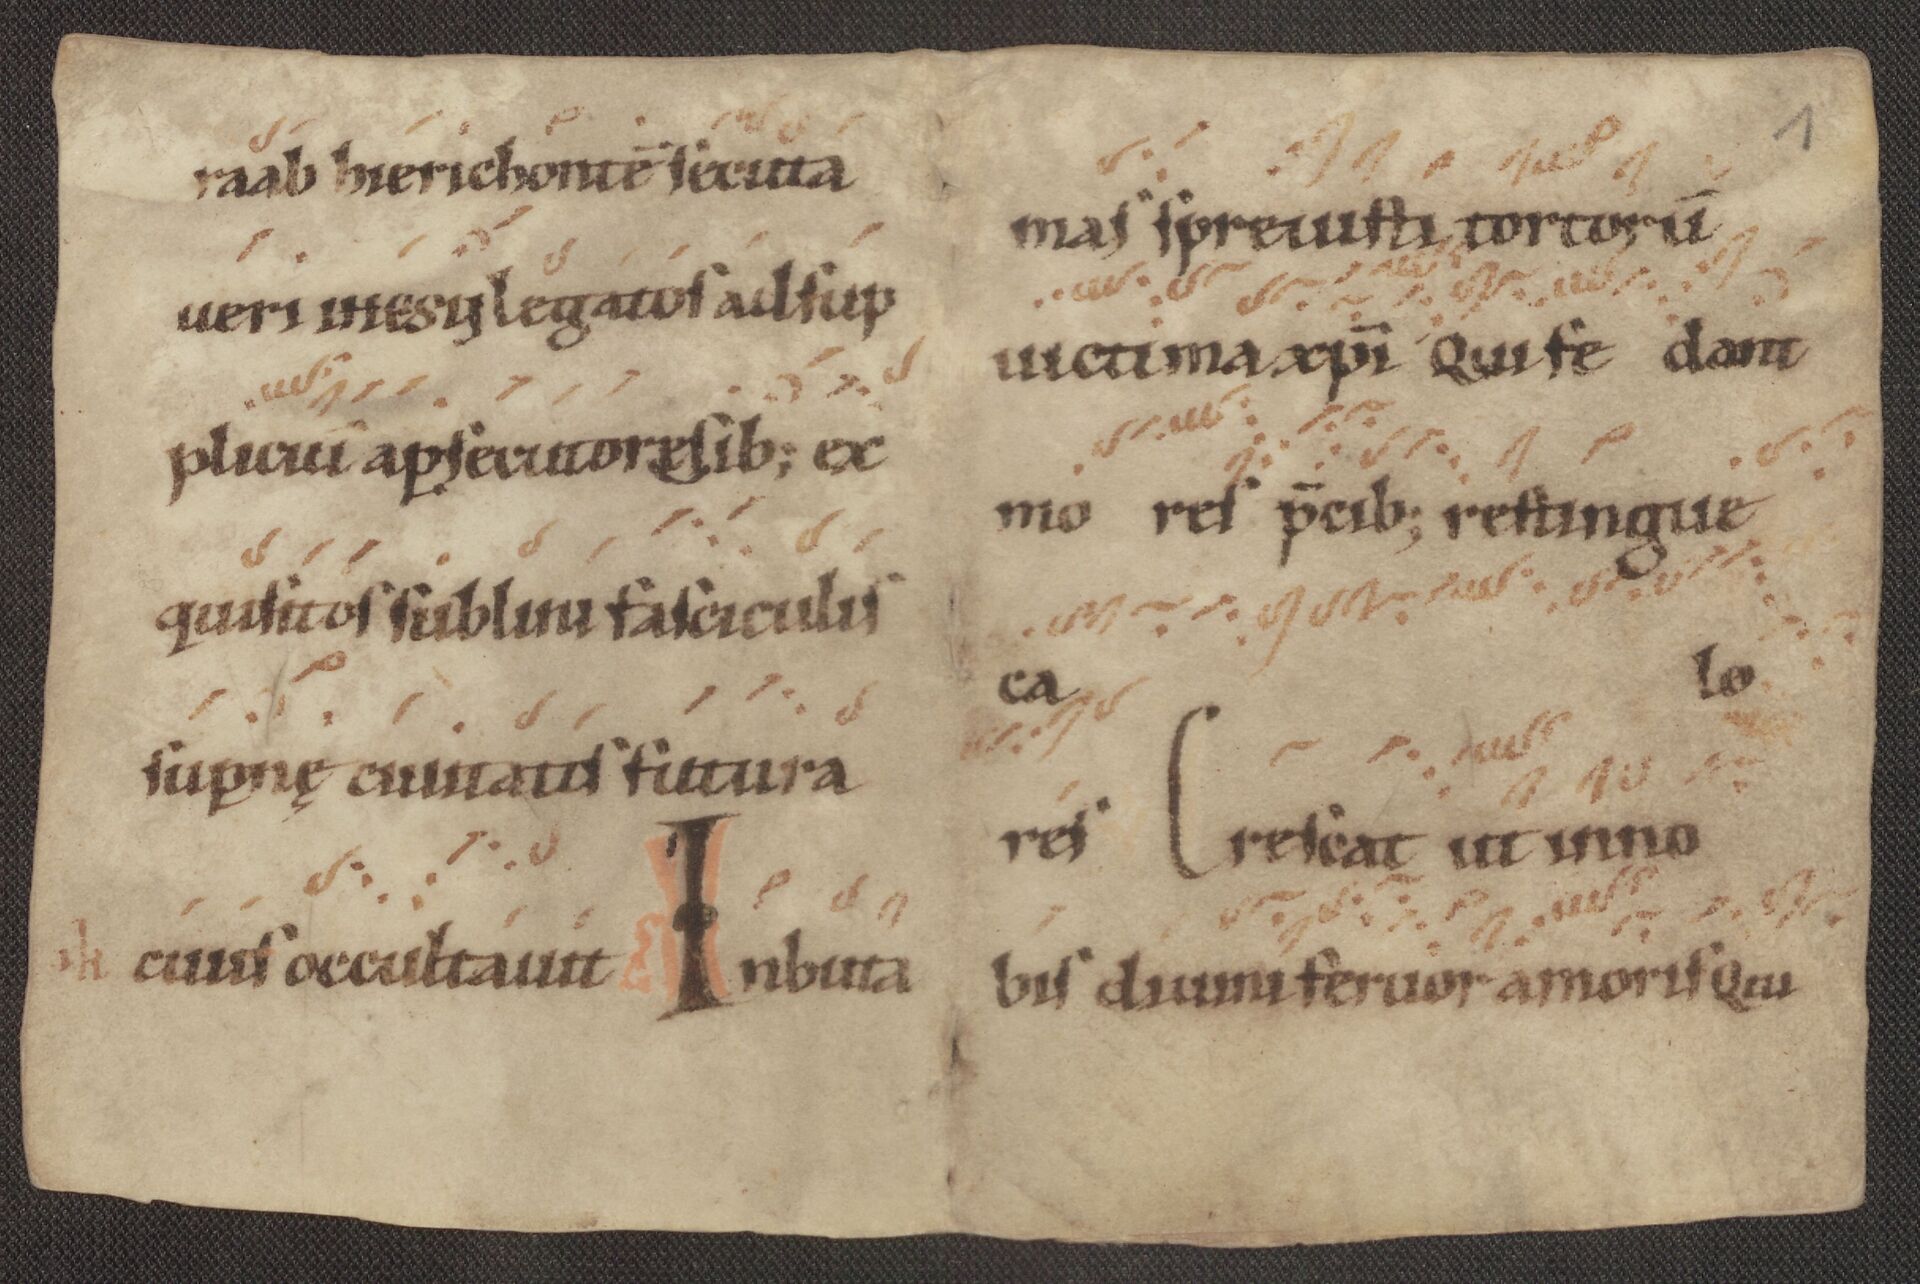 raab hierichontē secuta
ueri iħesu legatos ad sup
pliciū a psecutoręsib; ex
quisitos sub lini fasciculis
supnę ciuitatis futura
ciuis occultauit Inbuta
1
mas spreuisti tortorū
uictima xp̄i Qui se dant
mo res p̄cib; restingue
ca lo
res Crescat ut in no
bis diuini feruor amoris Qui